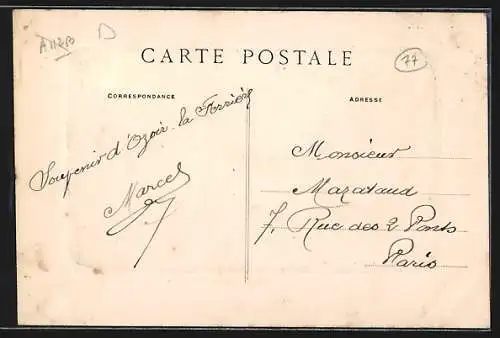 CARTE POSTALE
77
CORRESPONDANCE
Souvenir d'Ozoir la Ferrière
Marcel
ADRESSE
Monsieur
Mazataud
7, Rue des 2 Ponts
Paris